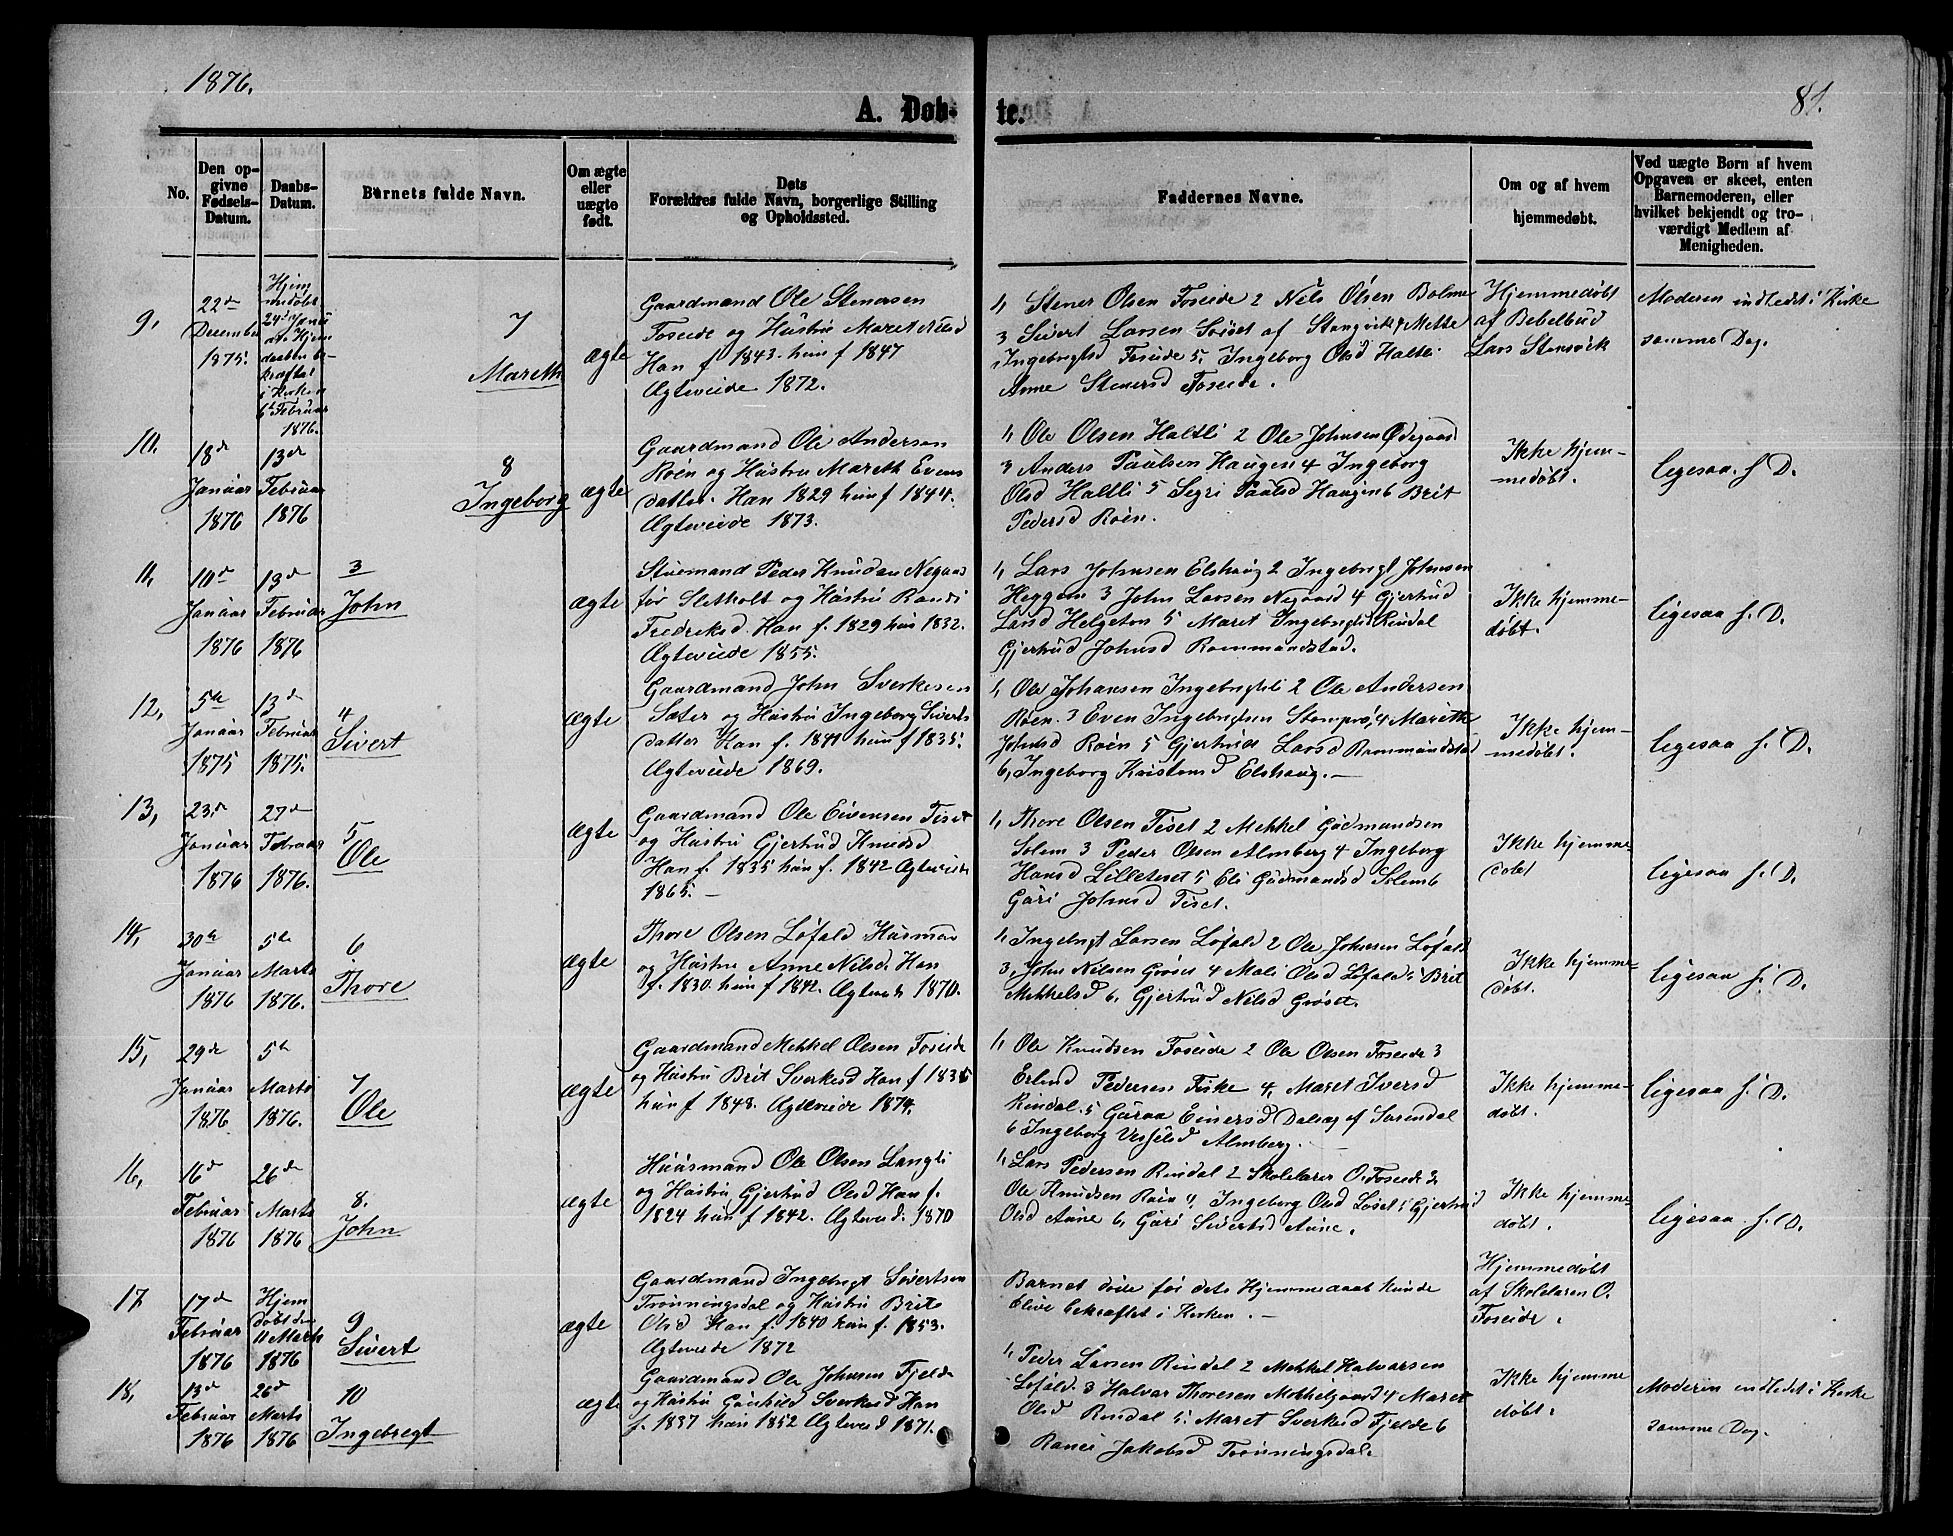 1876.
81.
A. Døb-
te.
No.
Den op-
givne
Fødsels-
Datum.
Daabs-
Datum.
Barnets fulde Navn.
Om ægte
eller
uægte
født.
Dets
Forældres fulde Navn, borgerlige Stilling
og Opholdssted.
Faddernes Navne.
Om og af hvem
hjemmedøbt.
Ved uægte Børn af hvem
Opgaven er skeet, enten
Barnemoderen, eller
hvilket bekjendt og tro-
værdigt Medlem af
Menigheden.
9,
22de
December
1875.
Hjem
medøbt
24de
Hjem
daaben be-
kræftet
i Kirken
6te Februar
1876.
7
Mareth
ægte
Gaardmand Ole Stenersen
Foseide og Hustru Maret Nilsd
Han f 1843. hun f 1847
Ægteviede 1872.
1, Stener Olsen Foseide 2 Nels Olsen Bolme
3 Sivert Larsen Sæset af Stangvik 4 Mette
Ingebrigtsd Foseide 5, Ingeborg Olsd Haltli
Anne Stenersd Foseide.
Hjemmedøbt
af Bebelbud
Lars Stensvik
Moderen indledet i Kirke
samme Dag.
10,
18de
Januar
1876
13de
Februar
1876
8
Ingeborg
ægte
Gaardmand Ole Andersen
Roen og Hustru Mareth Evens
datter. Han 1829 hun f 1844.
Ægteviede 1873.
1, Ole Olsen Haltli 2 Ole Johnsen Ødegaard
3 Anders Paulsen Haugen 4 Ingeborg
Olsd Haltli 5 Segri Paulsd Haugen 6 Brit
Pedersd Roen.
Ikke hjem-
medøbt.
ligesaa s. D.
11,
10de
Januar
1876
13de
Februar
1876
3
John
ægte
Stuemand Peder Knudsen Negaard
før Sletholt og Hustru Randi
Fredriksd. Han f. 1829 hun 1832.
Ægteviede 1855.
1, Lars Johnsen Elshaug 2 Ingebrigt Johnsen
Heggem 3 John Larsen Negaard 4 Gjertrud
Larsd Helgeton 5 Maret Ingebrigtsd Rindal
Gjertrud Johnsd Rommundstad.
Ikke hjemme-
døbt.
ligesaa s. D.
12,
5te
Januar
1875
13de
Februar
1875.
4
Sivert
ægte
Gaardmand John Sverkesen
Sæter og Hustru Ingeborg Siverts
datter Han f. 1841 hun f 1835.
Ægteviede 1869.
1, Ole Johansen Ingebrigtli 2 Ole Andersen
Roen. 3 Even Ingebrigtsen Stomprø 4 Mareth
Johnsd Roen 5 Gjertrud Larsd Rommundstad
6, Ingeborg Kristensd Elshaug. —
Ikke hjem-
medøbt.
ligesaa s. D.
13,
23de
Januar
1876
27de
Februar
1876.
5
Ole
ægte
Gaardmand Ole Eivensen Tiset
og Hustru Gjertrud Knudsd
Han f. 1835 hun f. 1842 Ægteviede
1865. —
1, Thore Olsen Tiset 2 Mekkel Gudmundsen
Solem 3 Peder Olsen Almberg 4 Ingeborg
Hansd Lilleteset 5 Eli Gudmundsd Solem 6
Guri Johnsd Tiset.
Ikke hjemme-
døbt
ligesaa s. D.
14,
30te
Januar
1876
5te
Marts
1876.
6
Thore
ægte
Thore Olsen Løfald Husman
og Hustru Anne Nilsd. Han
f. 1830. hun f 1842. Ægtevied 1870.
1, Ingebrigt Larsen Løfald 2 Ole Johnsen Løfald
3, John Nilsen Grøset 4 Mali Olsd Løfald 5 Brit
Mekkelsd 6, Gjertrud Nilsd Grøset.
Ikke hjemme-
døbt.
ligesaa s. D.
15,
29de
Januar
1876
5te
Marts
1876.
7
Ole
ægte
Gaardmand Mekkel Olsen Foseide
og Hustru Brit Sverkesd Han f 1836
hun f 1848. Ægteviede 1874.
1, Ole Knudsen Foseide 2 Ole Olsen Foseide 3
Erlend Pedersen Fiske 4, Maret Iversd
Rindal. 5 Guraa Einersd Dalsæg af Surendal
6 Ingeborg Vesselsd Almberg. —
Ikke hjemme-
døbt.
ligesaa s. D.
16,
16de
Februar
1876
26de
Marts
1876
8.
John
ægte
Huusmand Ole Olsen Langli
og Hustru Gjertrud Olsd Han f.
1824 hun f 1842. Ægtevied. 1870
1, Lars Pedersen Rindal 2 Skolelærer O. Foseide 3
Ole Knudsen Roen 4, Ingeborg Olsd Løset 5 Gjertrud
Olsd Aune 6, Guri Sivertsd Aune.
Ikke hjemme-
døbt.
ligesaa s. D.
17
17de
Februar
1876
Hjem
døbt den
11 Marts
1876
9
Sivert
ægte
Gaardmand Ingebrigt Sivertsen
Trønningsdal og Hustru Brit
Olsd Han f. 1840 hun f. 1853.
Ægteviede 1872
Barnet døde før dets Hjemmedaab kunde
blive bekræftet i Kirken. —
Hjemmedøbt
af Skolelæren O.
Foseide.
18,
13de
Februar
1876
26de
Marts
1876
10
Ingebregt
ægte
Gaardmand Ole Johnsen Fjelde
og Hustru Gunhild Sverkesd Han
f. 1837 hun 1852 Ægtevied 1871.
1, Peder Larsen Rindal 2 Mekkel Halvarsen
Løfald. 3 Halvar Thoresen Mekkelgaard 4 Maret
Olsd Rindal 5. Maret Sverkesd Fjelde 6
Ranei Jakobsd Trønningsdal.
Ikke hjemme
døbt.
Moderen indledet i Kirke
samme Dag.